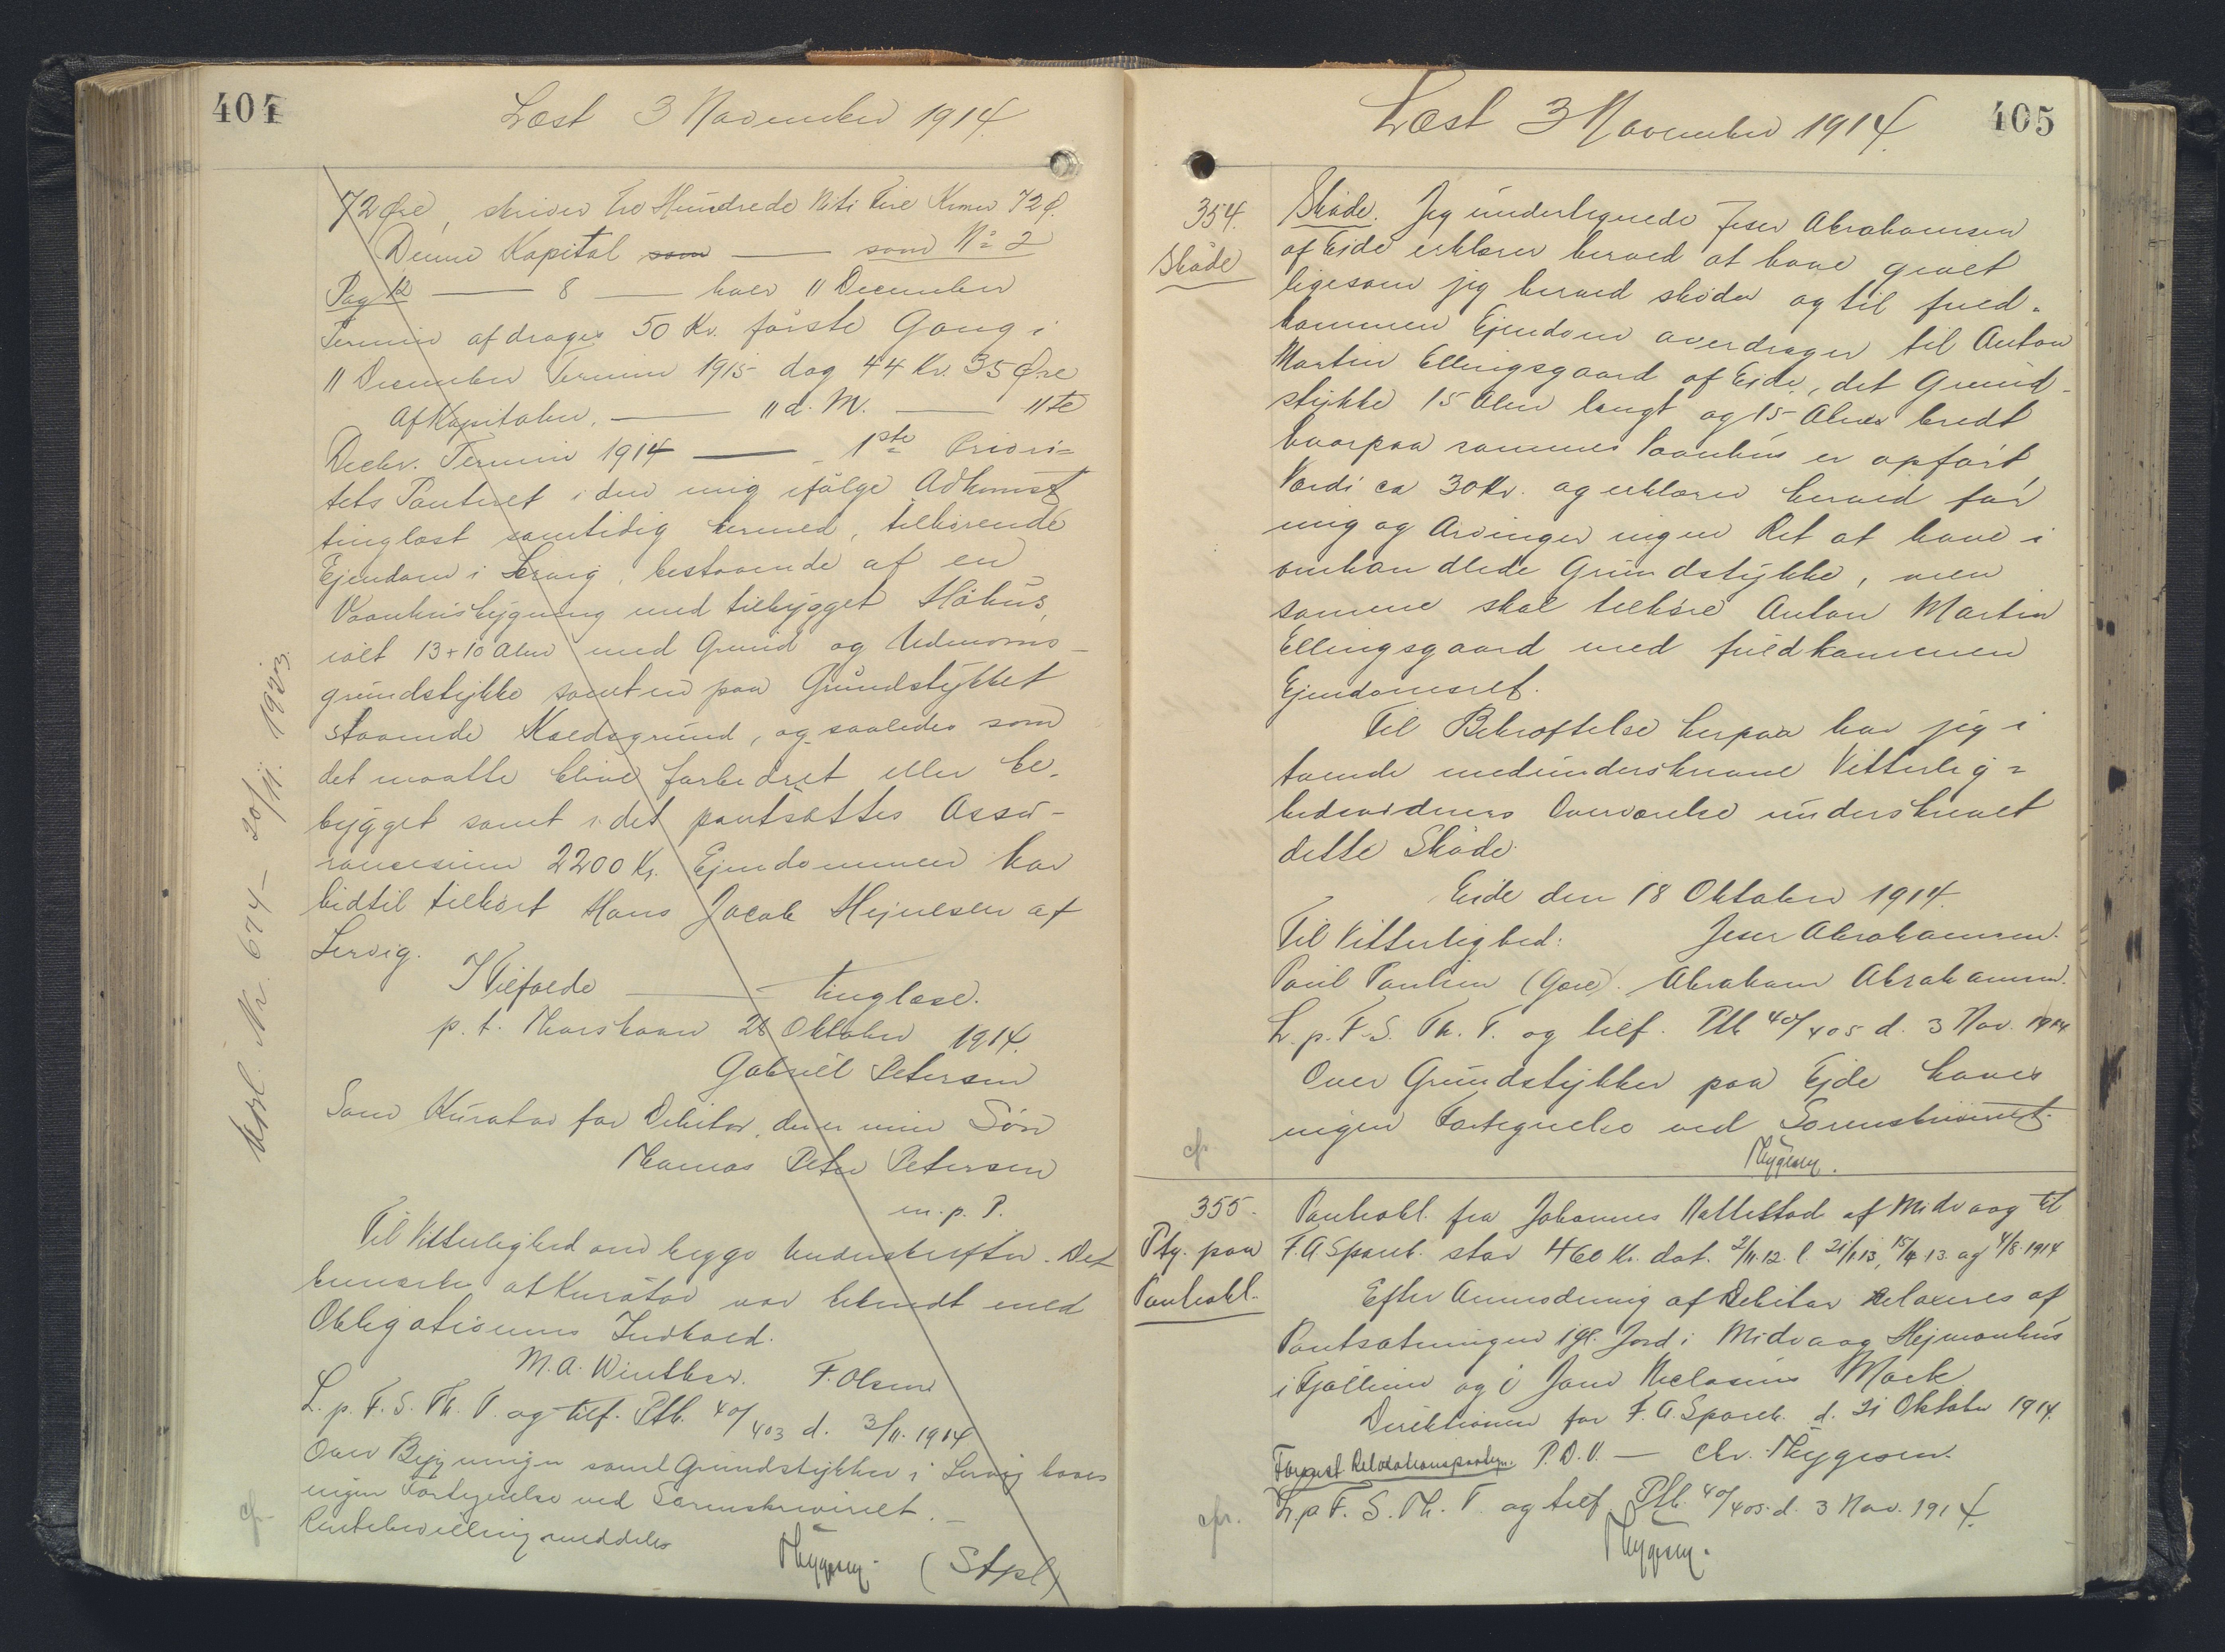 404
Læst 3 November 1914.
72 Øre, skriver tre Hundrede Niti Fire Kroner 72 Ø.
Denne Kapital som — som No 2
Pag 12 — 8 — hver 11 December
Termin afdrages 50 Kr. første Gang i
11 December Termin 1915 dog 44 Kr. 35 Øre
Af Kapitalen, — 11 d. M. — 11te
Decbr. Termin 1914 — 1ste Priori=
tets Panteret i den mig ifølge Adkomst
tinglæst samtidig hermed, tilhørende
Ejendom i Lervig, bestaaende af en
Vaanhusbygning med tilbygget Höhus
ialt 13+10 Alen med Grund og Udenoms-
grundstykke samt en paa Grundstykket
staaende Kaldsgrund, og saaledes som
det maatte blive forbedret eller be-
bygget samt i det pantsattes Assu-
rancesum 2200 Kr. Ejendommen har
hidtil tilhørt Hans Jacob Hejnesen af
Lervig.
I Tilfælde — tinglæse.
p. t. Thorshavn 28 Oktober 1914.
Gabriel Petersen
Som Kurator for Debitor, der er min Søn
Thomas Peter Petersen
m. p. P.
Til Vitterlighed om begge Underskrifter. Det
bemærkes at Kurator var bekendt med
Obligationens Indhold.
M. A. Winther. F. Olsen
L. p. F. S. Th. T. og tilf. Ptb. 40/403 d. 3/11. 1914
Over Bygninger samt Grundstykker i Lervig haves
ingen Fortegnelse ved Sorenskriveriet. -
Rentebevilling meddeles
Thygesen. (Stpl)
cfr
Udsl. Nr. 674 - 20/11. 1933.
405
Læst 3 November 1914.
354.
Skøde
Skøde. Jeg undertegnede Jeser Abrahamsen
af Eide erklærer herved at have givet
ligesom jeg herved skøder og til fuld-
kommen Ejendom overdrager til Anton
Martin Ellingsgaard af Eide, det Grund-
stykke 15 Alen langt og 15 Alen bredt
hvorpaa sammes Vaanhus er opført
Værdi ca 30 Kr. og erklærer herved for
mig og Arvinger ingen Ret at have i
omhandlede Grundstykke, men
samme skal tilhøre Anton Martin
Ellingsgaard med fuldkommen
Ejendomsret.
Til Bekræftelse herpaa har jeg i
tvende medunderskrevne Vitterlig=
hedsvidners Overværelse underskrevet
dette Skøde.
Eide den 18 Oktober 1914.
Til Vitterlighed: Jeser Abrahamsen.
Poul Poulsen (Gøre). Abraham Abrahamsen.
L. p. F. S. Th. T. og tilf. Ptb 40/405 d. 3 Nov. 1914
Over Grundstykker paa Ejde haves
ingen Fortegnelse ved Sorenskriveriet.
Thygesen.
cfr
355.
Ptg. paa
Pantobl.
Pantobl. fra Johannes Hattestad af Midvaag til
F. A Spareb. stor 460 Kr. dat. 2/11. 12. l. 21/1 13, 15/4 13. og 4/8. 1914
Efter Anmodning af Debitor relaxeres af
Pantsætningen 1 gl. Jord i Midvaag Hejmanhus
i Fjøllum og i Jans Niclasens Mark
Direktionen for F. A. Spareb. d. 21 Oktober 1914.
Foregst. Relaxationspaategn. P. D. V. — Chr. Thygesen.
L. p F. S. Th. T. og tilf. Ptb. 40/405. d. 3 Nov. 1914.
Thygesen.
cfr.